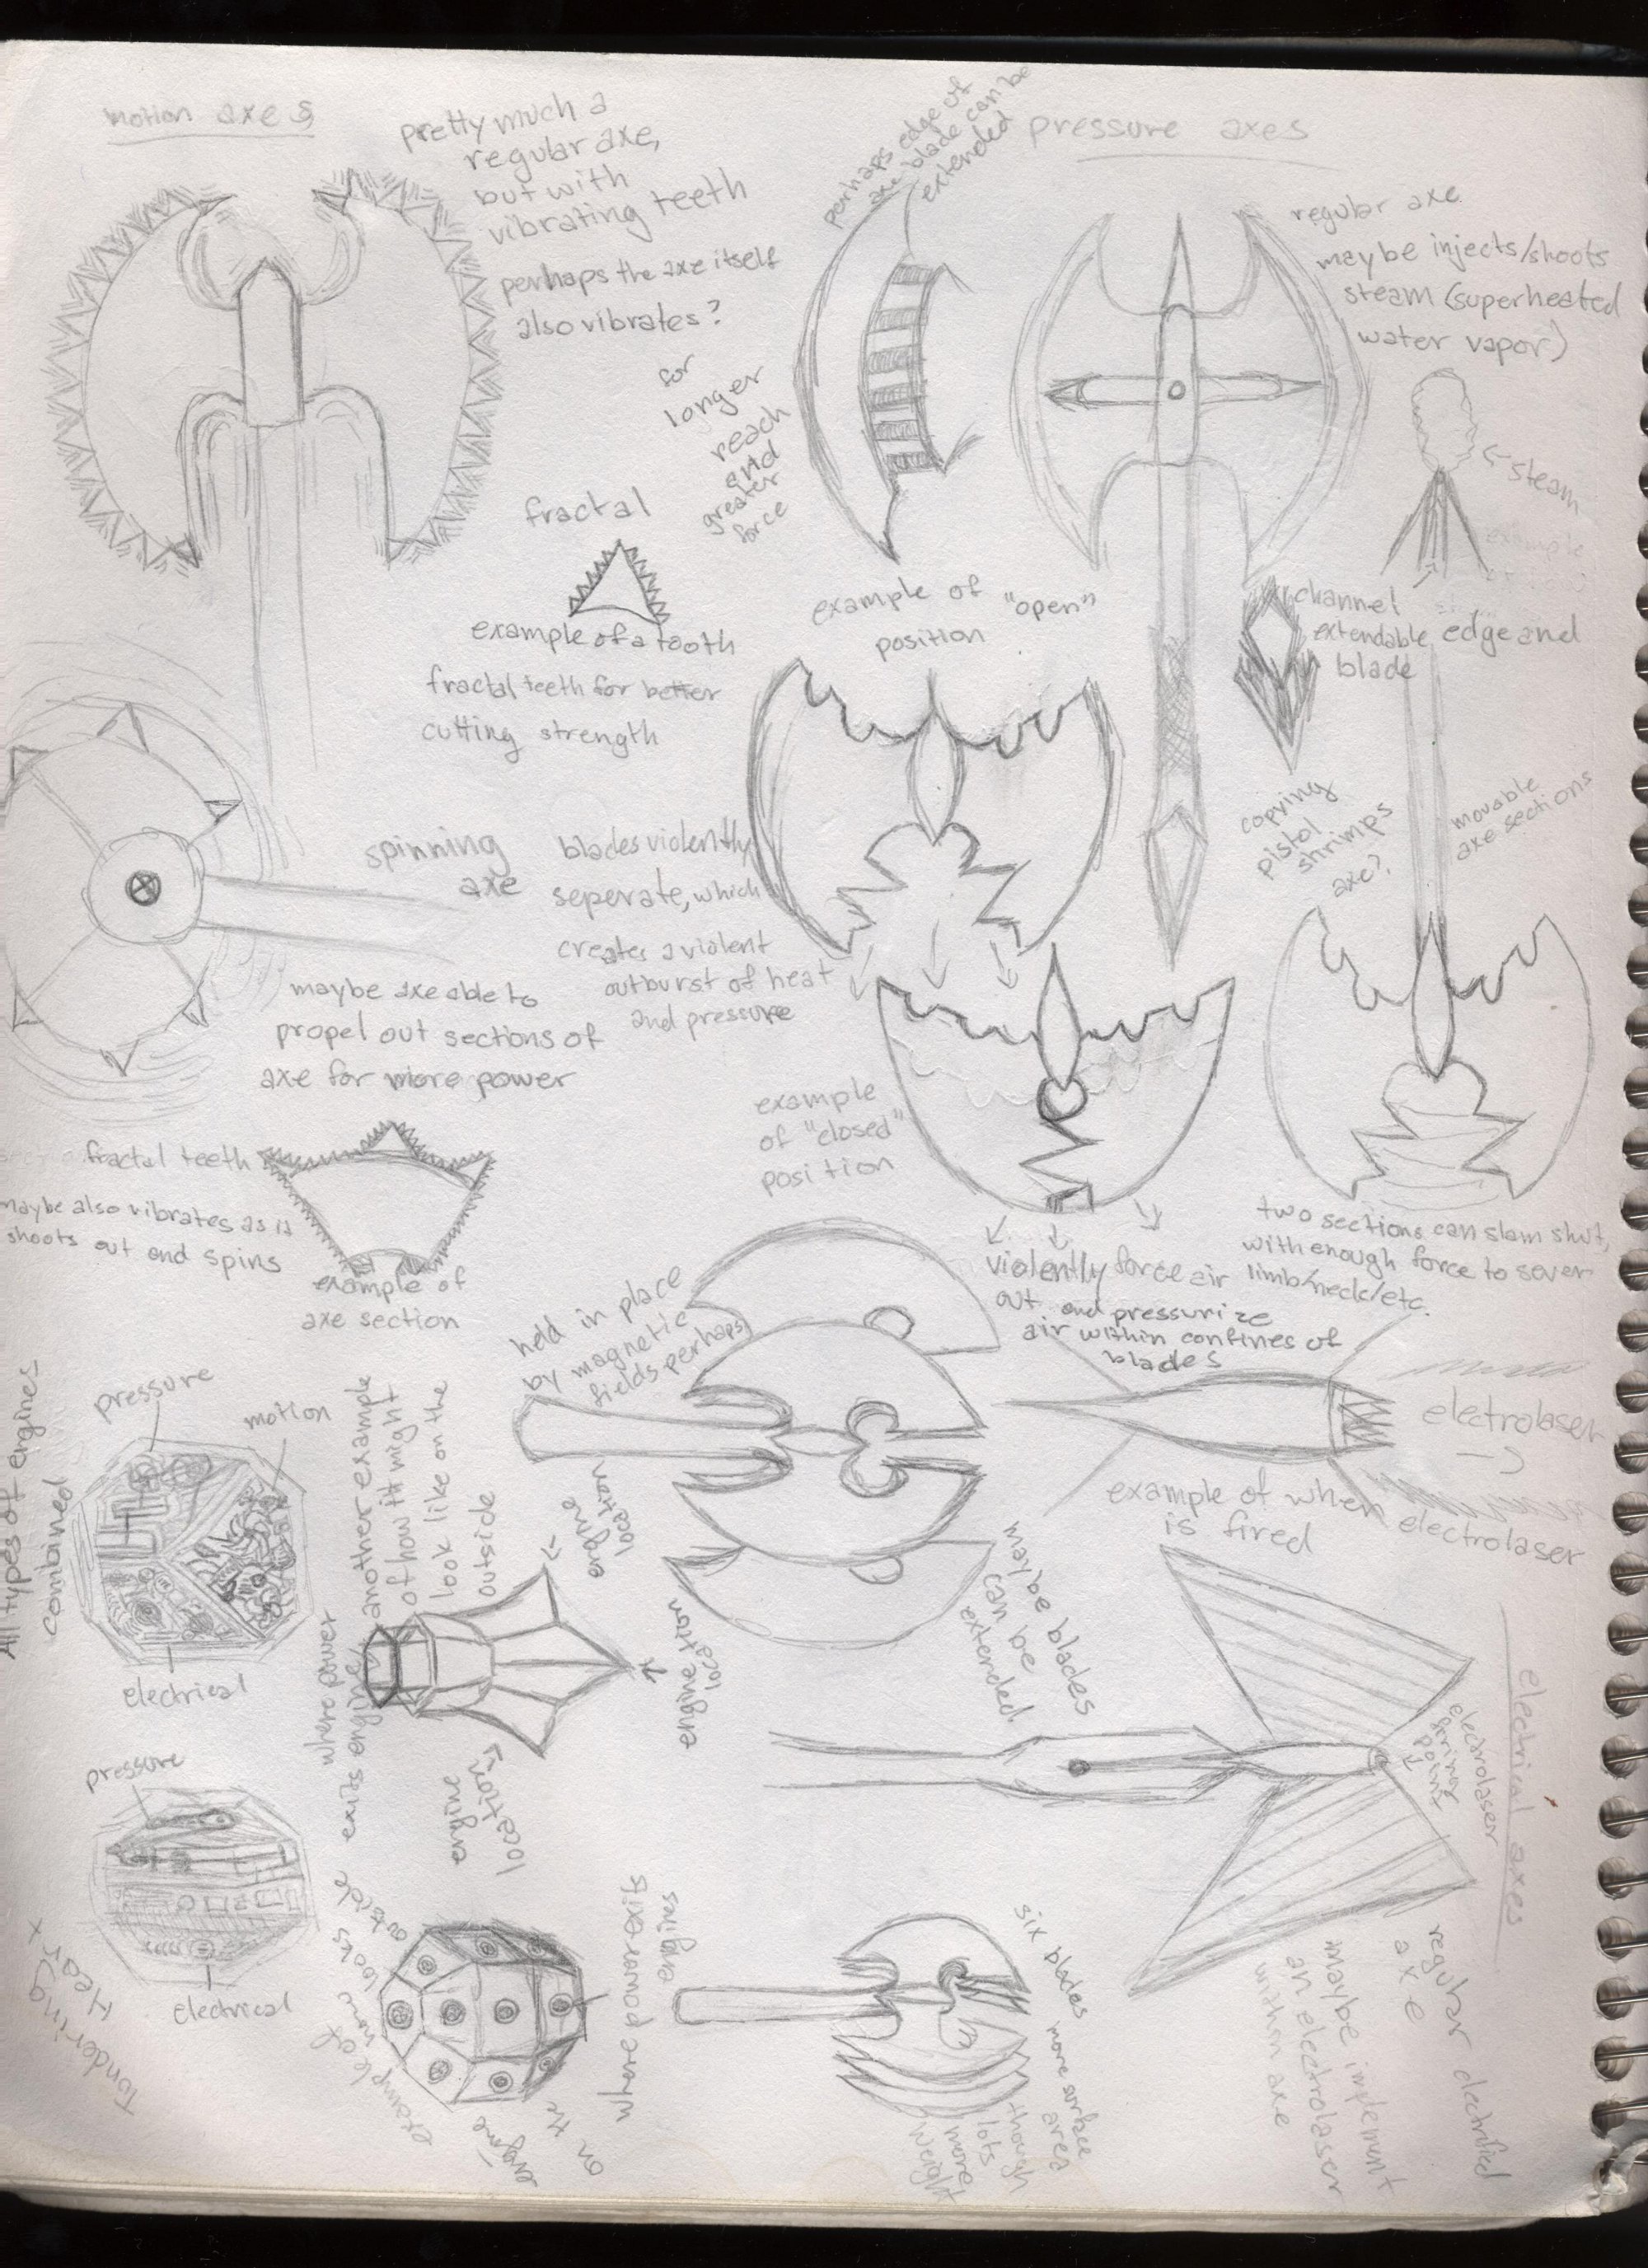 motion axes
pretty much a
regular axe,
but with
vibrating teeth
perhaps the axe itself
also vibrates?
fractal
example of a tooth
fractal teeth for better
cutting strength
spinning
axe
maybe axe able to
propel out sections of
axe for more power
fractal teeth
maybe also vibrates as it
shoots out and spins
example of
axe section
pressure axes
perhaps edge of
axe blade can be
extended
for
longer
reach
and
greater
force
regular axe
maybe injects/shoots
steam (superheated
water vapor)
steam
example
channel
extendable edge and
blade
example of "open"
position
blades violently
seperate, which
creates a violent
outburst of heat
and pressure
copying
pistol
shrimps
axe?
movable
axe sections
example
of "closed"
position
violently force air
out and pressurize
air within confines of
blades
two sections can slam shut,
with enough force to sever
limb/neck/etc.
held in place
by magnetic
fields perhaps
electrolaser
example of when electrolaser
is fired
maybe blades
can be
extended
electrical axes
electrolaser
firing
point
regular electrified
axe
maybe implement
an electrolaser
within axe
six blades
more surface
area
though
lots
more
weight
All types of engines
combined
pressure
motion
electrical
another example
of how it might
look like on the
outside
where power
exits engine
engine
location
engine
location
engine
location
pressure
electrical
Tondering
Heart
example of
how looks
outside
on the
engine
where power exits
engines